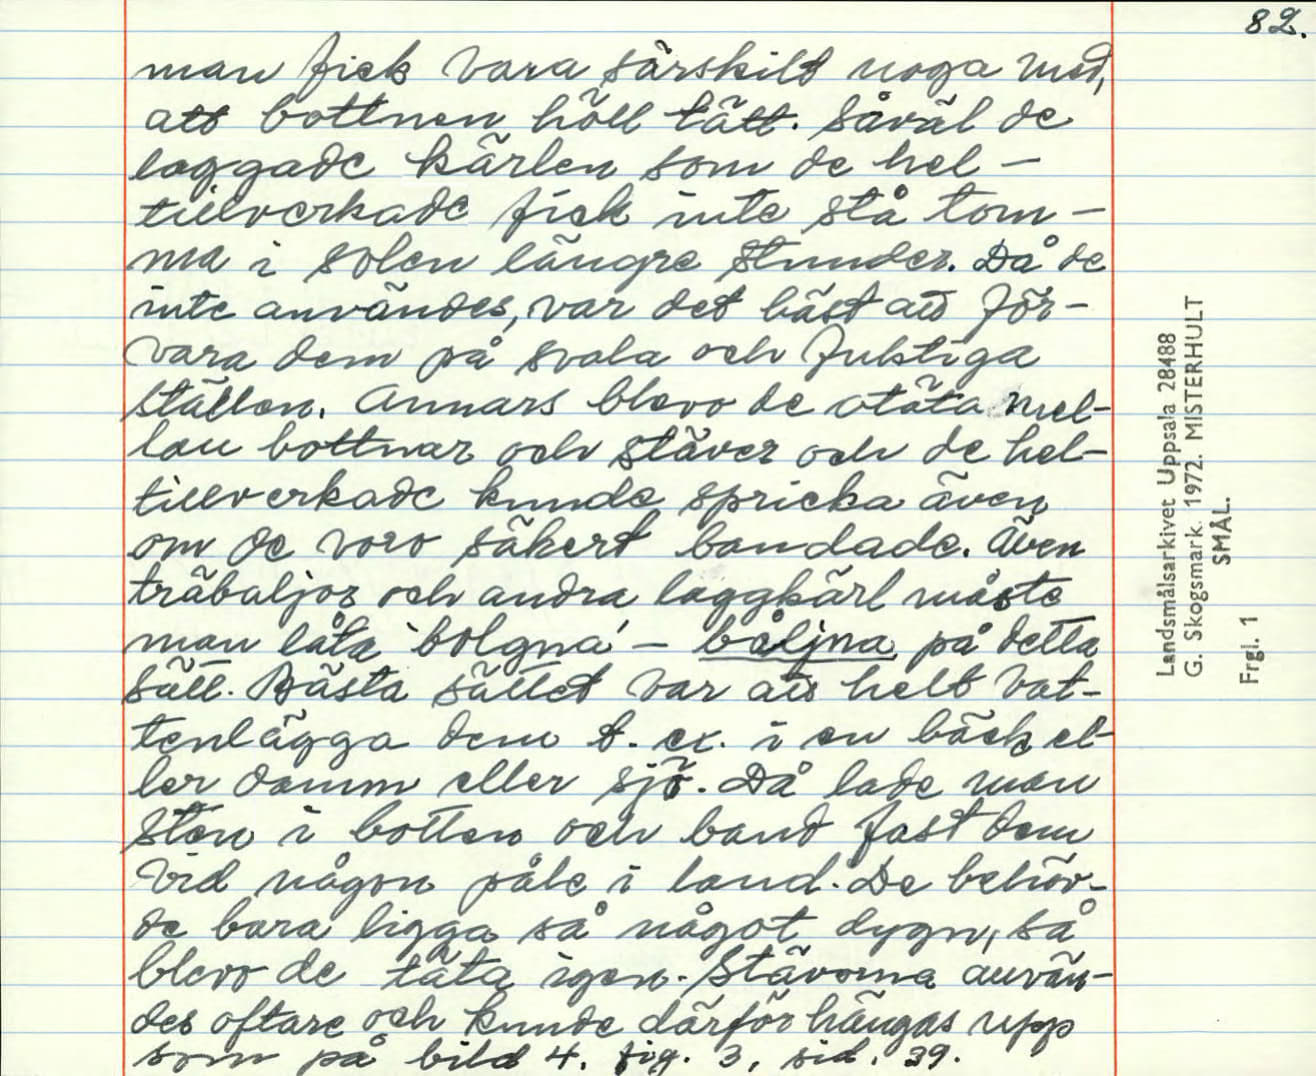 82.
man fick vara särskilt noga med,
att bottnen höll tätt. Såväl de
laggade kärlen som de hel-
tillverkade fick inte stå tom-
ma i solen längre stunder. Då de
inte användes, var det bäst att för-
vara dem på svala och fuktiga
ställen. Annars blevo de otäta mel-
lan bottnar och stäver och de hel-
tillverkade kunde spricka även
om de voro säkert bandade. Även
träbaljor och andra laggkärl måste
man låta 'bolgna' - båljna på detta
sätt. Bästa sättet var att helt vat-
tenlägga dem t. ex. i en bäck el-
ler damm eller sjö. Då lade man
sten i botten och band fast dem
vid någon påle i land. De behöv-
de bara ligga så något dygn, så
blevo de täta igen. Stävorna använ-
des oftare och kunde därför hängas upp
som på bild 4. fig. 3, sid. 39.
Landsmålsarkivet Uppsala 28488
G. Skogsmark. 1972. MISTERHULT
SMÅL.
Frgl. 1